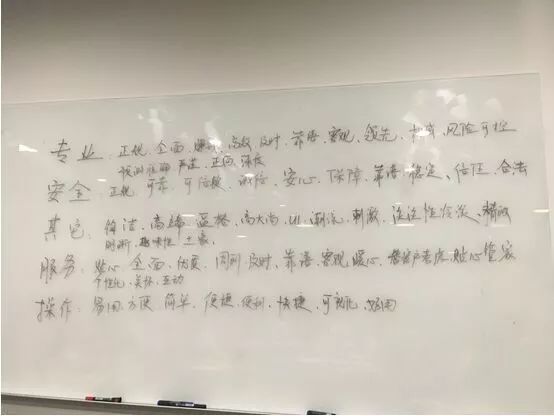 专业：正规、全面、高效、及时、靠谱、客观、领先、权威、风险可控
预测准确、严谨、正面、深度
安全：正规、可靠、可信赖、诚信、安心、保障、靠谱、稳定、信任、合法
其它：简洁、高端、逼格、高大尚、UI、潮流、刺激、活泼性、精致
时新、趣味性、土豪
服务：贴心、全面、优质、周到、及时、靠谱、客观、暖心、贴心管家
个性化、关怀、互动
操作：易用、方便、简单、便捷、便利、快捷、可视化、好用